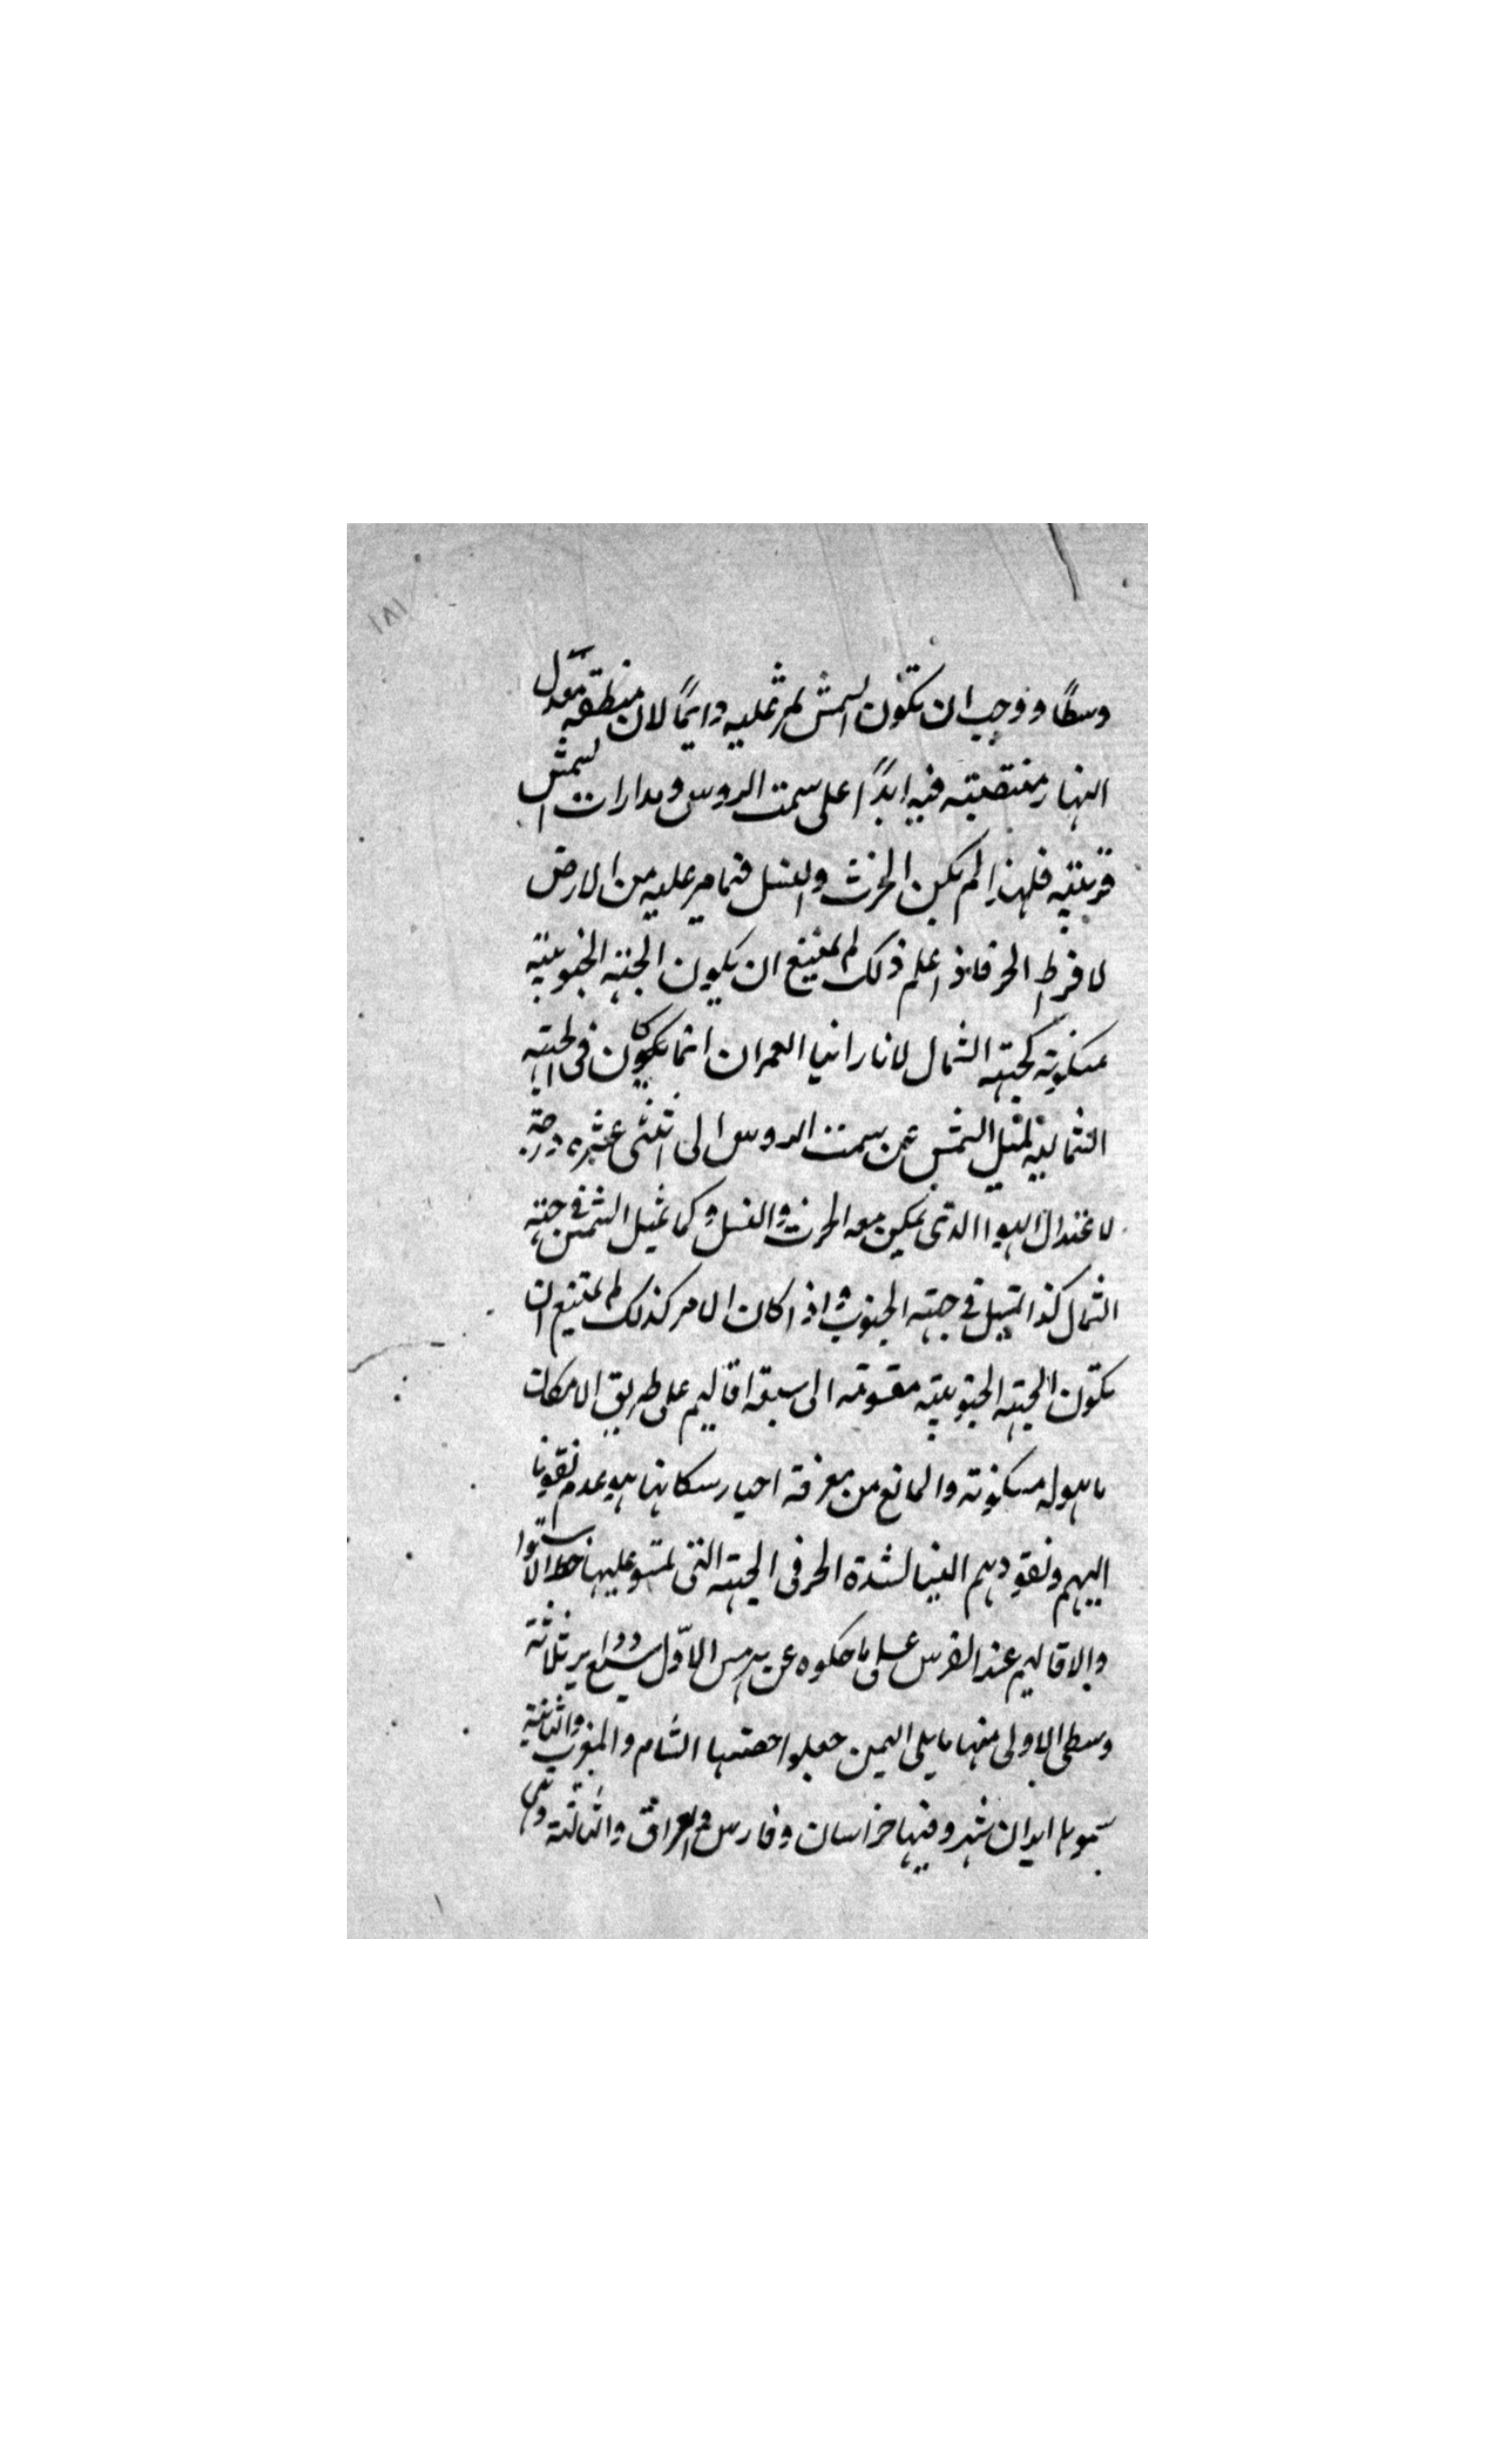 ١٨١
وسطًا ووجب ان تكون الشمس تمر عليه دايمًا لان منطقه معدل
النهار منتصبته فيه ابدًا على سمت الروس ومدارات الشمس
قريبته فلهذا لم يكن الحرث والنسل فيما مر عليه من الارض
لافراط الحر فاذا علم ذلك لم يمتنع ان يكون الجهته الجنوبيته
مسكونته كجهته الشمال لانا راينا العمران انما يكون في الجهته
الشماليته لميل الشمس عن سمت الروس الى اثنتى عشره درجته
لاعتدال الهوا الذى يمكن معه الحرث والنسل وكما تميل الشمس في جهته
الشمال كذا تميل في جهته الجنوب واذا كان الامر كذلك لم يمتنع ان
تكون الجهته الجنوبيته مقسومته الى سبعه اقاليم على طريق الامكان
ماهوله مسكونته والمانع من معرفته اخبار سكانها هو عدم نفوذنا
اليهم ونفوذهم الينا لشدة الحر فى الجهته التى عليها خط الاستوا
والاقاليم عند الفرس على ما حكوه عن هرمس الاول سبع دواير ثلاثته
وسطى الاولى منها ما يلى اليمين جعلوا حصتها الشام والمغرب والثانيته
سموها ايران شهر وفيها خراسان وفارس والعراق والثالثته